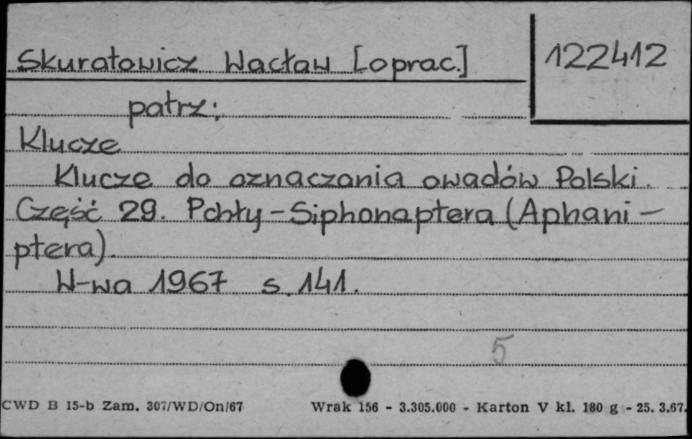 Skuratowicz Wacław [oprac.]
122412
patrz:
Klucze
Klucze do oznaczania owadów Polski.
Część 29. Pchły - Siphonaptera (Aphani -
ptera).
W-wa 1967 s. 141.
5
CWD B 15-b Zam. 307/WD/On/67 Wrak 156 - 3.305.000 - Karton V kl. 180 g - 25. 3.67.